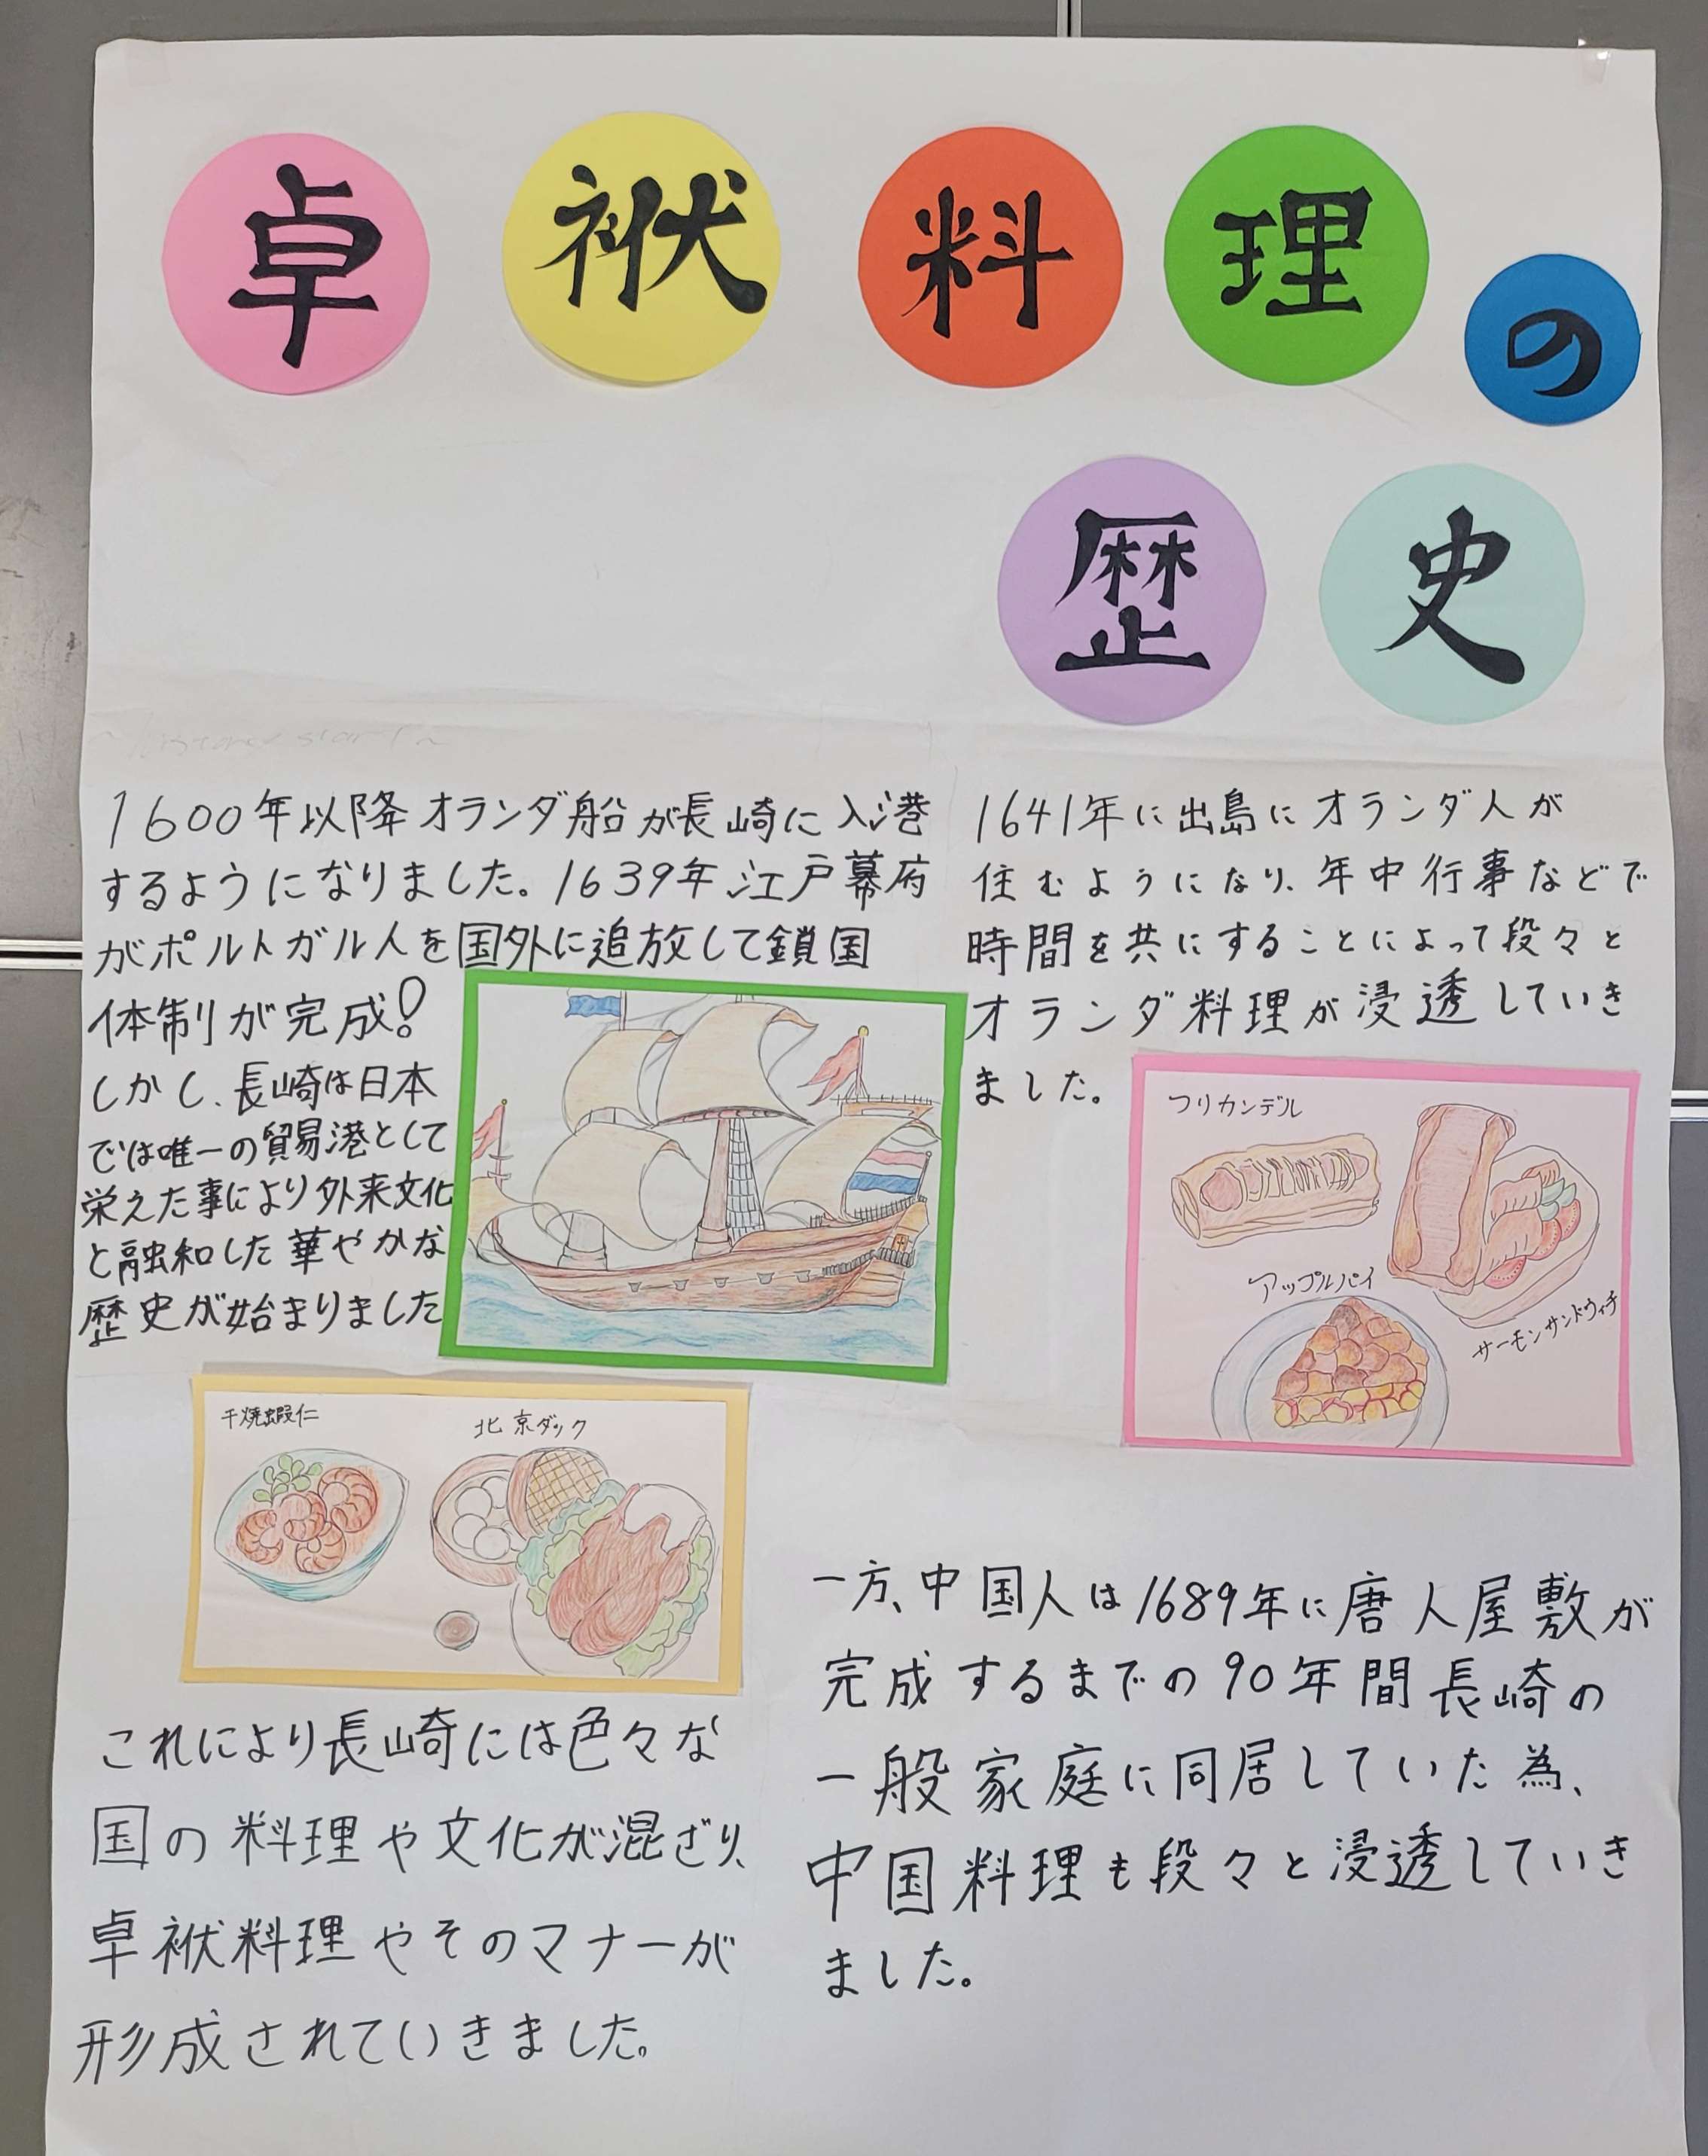 卓袱料理の
歴史
1600年以降オランダ船が長崎に入港
するようになりました。1639年江戸幕府
がポルトガル人を国外に追放して鎖国
体制が完成!
しかし、長崎は日本
では唯一の貿易港として
栄えた事により外来文化
と融和した華やかな
歴史が始まりました
1641年に出島にオランダ人が
住むようになり、年中行事などで
時間を共にすることによって段々と
オランダ料理が浸透していき
ました。
フリカンデル
アップルパイ
サーモンサンドウィチ
一方、中国人は1689年に唐人屋敷が
完成するまでの90年間長崎の
一般家庭に同居していた為、
中国料理も段々と浸透していき
ました。
干焼蝦仁
北京ダック
これにより長崎には色々な
国の料理や文化が混ざり、
卓袱料理やそのマナーが
形成されていきました。